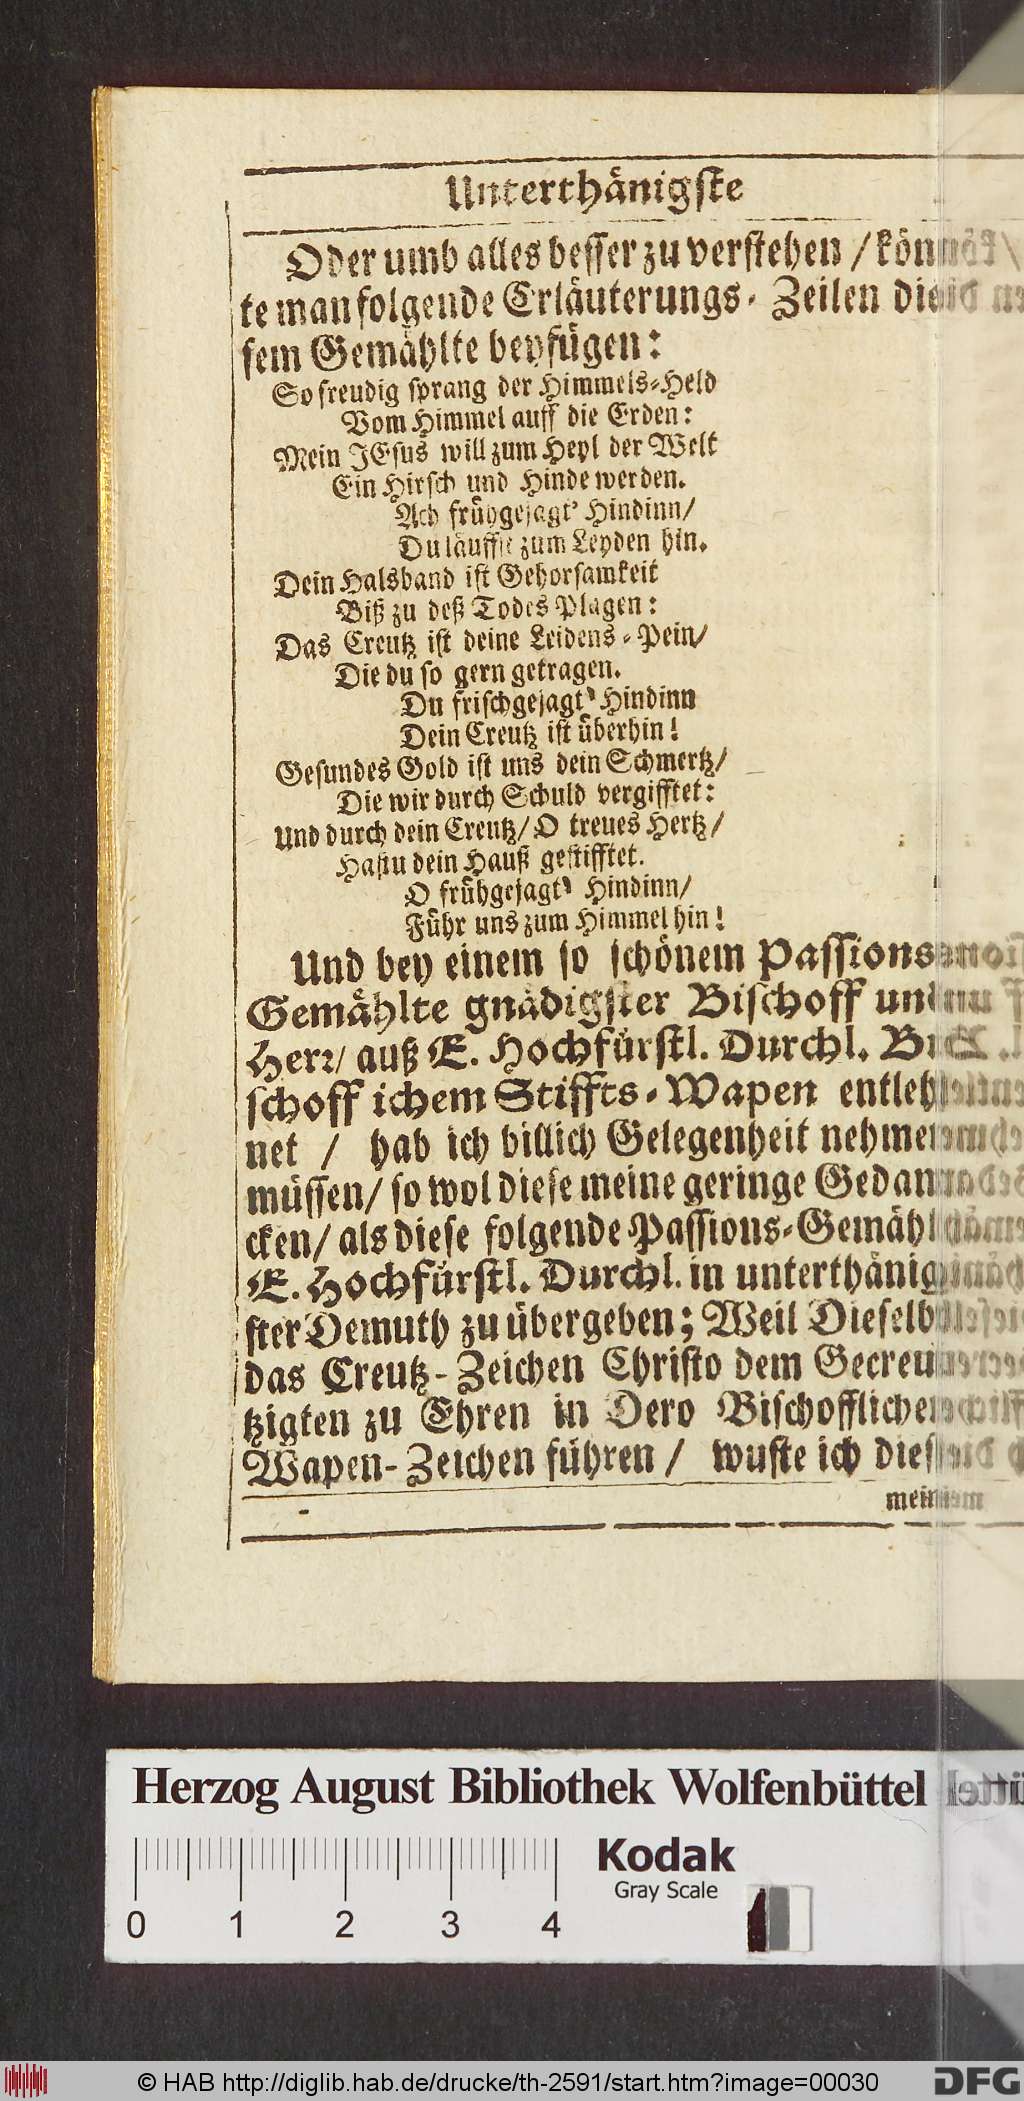 Unterthänigste
Oder umb alles besser zu verstehen / kön
te man folgende Erläuterungs-Zeilen die
sem Gemählte beyfügen:
So freudig sprang der Himmels-Held
Vom Himmel auff die Erden:
Mein JEsus will zum Heyl der Welt
Ein Hirsch und Hinde werden.
Ach frühgejagt' Hindinn/
Du läuffst zum Leyden hin.
Dein Halsband ist Gehorsamkeit
Biß zu deß Todes Plagen:
Das Creutz ist deine Leidens-Pein/
Die du so gern getragen.
Du frischgejagt' Hindinn
Dein Creutz ist überhin!
Gesundes Gold ist uns dein Schmertz/
Die wir durch Schuld vergifftet:
Und durch dein Creutz/ O treues Hertz/
Hastu dein Hauß gestifftet.
O frühgejagt' Hindinn/
Führ uns zum Himmel hin!
Und bey einem so schönem Passions
Gemählte gnädigster Bischoff und
Herr/ auß E. Hochfürstl. Durchl. Bi
schofflichem Stiffts-Wapen entleh
net / hab ich billich Gelegenheit nehmen
müssen/ so wol diese meine geringe Gedan
cken/ als diese folgende Passions-Gemähl
E. Hochfürstl. Durchl. in unterthänig
ster Demuth zu übergeben; Weil Dieselb
das Creutz-Zeichen Christo dem Gecreu
tzigten zu Ehren in Dero Bischofflichen
Wapen-Zeichen führen / wuste ich dies
mein
Herzog August Bibliothek Wolfenbüttel
Kodak
Gray Scale
0 1 2 3 4
© HAB http://diglib.hab.de/drucke/th-2591/start.htm?image=00030
DFG